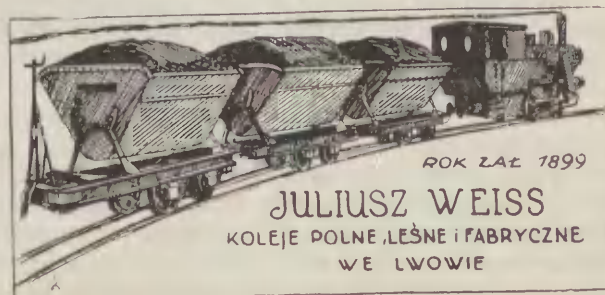 ROK ZAŁ 1899
JULIUSZ WEISS
KOLEJE POLNE, LEŚNE i FABRYCZNE
WE LWOWIE